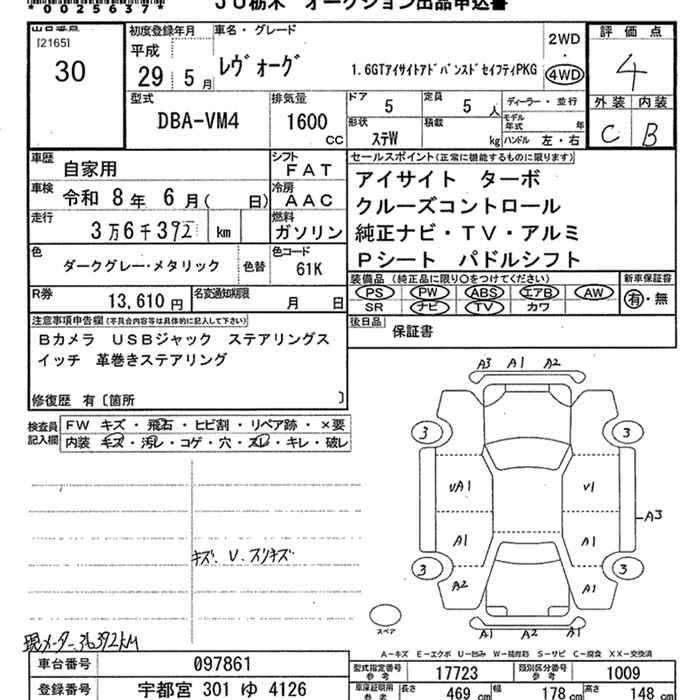 *0025637*
JU栃木 オークション出品申込書
[2165]
30
初度登録年月
平成
29 5 月
車名・グレード
レヴォーグ
1.6GTアイサイトアドバンスドセイフティPKG
2WD
・
4WD
評価点
4
外装 内装
C B
型式
DBA-VM4
排気量
1600
CC
ドア
5
定員
5 人
ディーラー・並行
形状
ステW
積載
kg
モデル年式 年
ハンドル 左・右
車歴
自家用
シフト
FAT
車検
令和 8年 6月( 日)
冷房
AAC
走行
3万6千392 km
燃料
ガソリン
色
ダークグレー・メタリック
色替
色コード
61K
R券
13,610 円
名変通知期限
月 日
セールスポイント(正常に機能するものに限ります)
アイサイト ターボ
クルーズコントロール
純正ナビ・TV・アルミ
Pシート パドルシフト
装備品 (純正品に限り○をつけてください)
PS PW ABS エアB AW
SR ナビ TV カワ
新車保証書
有・無
後日品
保証書
注意事項申告欄(不具合内容等は具体的に記入して下さい)
Bカメラ USBジャック ステアリングス
イッチ 革巻きステアリング
修復歴 有〔箇所 〕
検査員
記入欄
FW キズ・飛石・ヒビ割・リペア跡・×要
内装 キズ・汚レ・コゲ・穴・スレ・キレ・破レ
キズ、U、スリキズ
現メーター36392KM
A3 A1 A2
3 3
UA1 U1
A3
A1 A1
3 3
A2 A1
A1 A1 A2
スペア
A-キズ E-エクボ U-凹み W-補修跡 S-サビ C-腐食 XX-交換済
車台番号
097861
登録番号
宇都宮 301 ゆ 4126
型式指定番号
参考
17723
類別区分番号
参考
1009
車庫証明用
参考
長さ
469 cm
幅
178 cm
高さ
148 cm